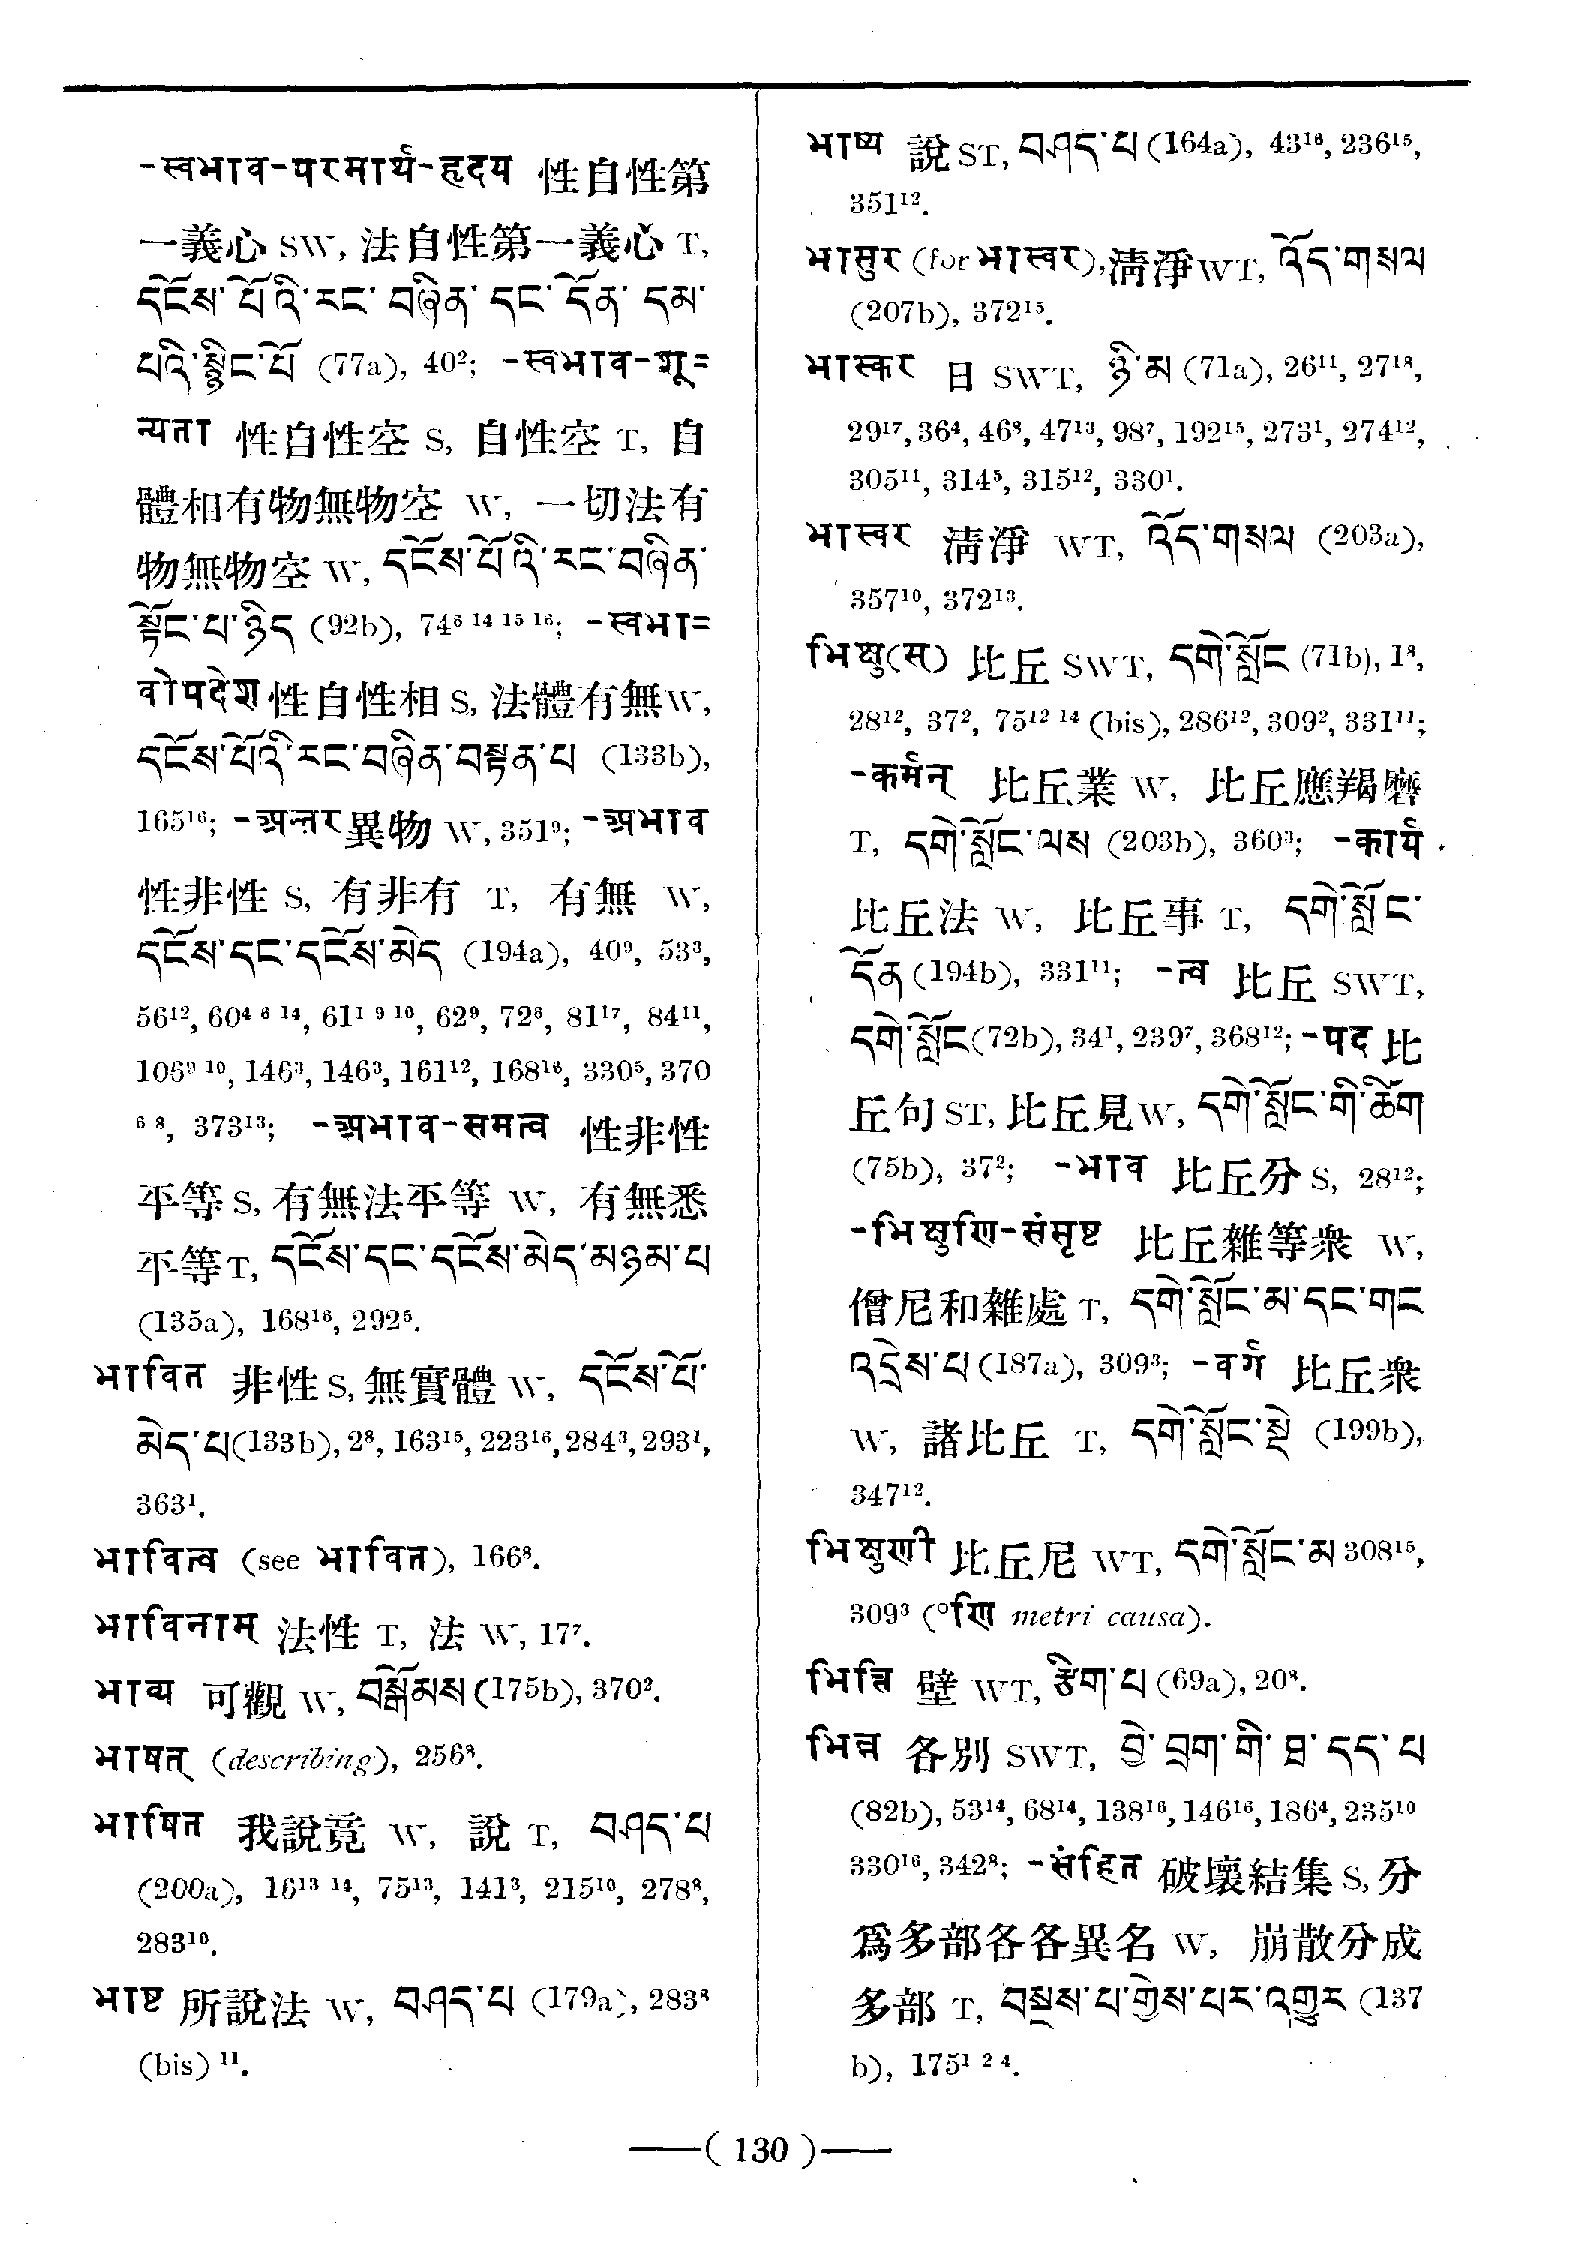 -स्वभाव-परमार्थ-हृदय 性自性第
一義心 SW, 法自性第一義心 T,
དངོས་པོའི་རང་བཞིན་དང་དོན་དམ་
པའི་སྙིང་པོ (77a), 40²; -स्वभाव-शू=
न्यता 性自性空 S, 自性空 T, 自
體相有物無物空 W, 一切法有
物無物空 W, དངོས་པོའི་རང་བཞིན་
སྟོང་པ་ཉིད (92b), 74⁶ ¹⁴ ¹⁵ ¹⁶; -स्वभा=
वोपदेश 性自性相 S, 法體有無 W,
དངོས་པོའི་རང་བཞིན་བསྟན་པ (133b),
165¹⁶; -अन्तर 異物 W, 351⁹; -अभाव
性非性 S, 有非有 T, 有無 W,
དངོས་དང་དངོས་མེད (194a), 40⁹, 53³,
56¹², 60⁴ ⁶ ¹⁴, 61¹ ⁹ ¹⁰, 62⁹, 72⁸, 81¹⁷, 84¹¹,
106⁹ ¹⁰, 146³, 146³, 161¹², 168¹⁶, 330⁵, 370
⁶ ⁸, 373¹³; -अभाव-समत्व 性非性
平等 S, 有無法平等 W, 有無悉
平等 T, དངོས་དང་དངོས་མེད་མཉམ་པ
(135a), 168¹⁶, 292⁵.
भावित 非性 S, 無實體 W, དངོས་པོ་
མེད་པ (133b), 2⁸, 163¹⁵, 223¹⁶, 284³, 293¹,
363¹.
भावित्व (see भावित), 166⁸.
भाविनाम् 法性 T, 法 W, 17⁷.
भाव्य 可觀 W, བསྒོམས (175b), 370².
भाषत् (describing), 256⁸.
भाषित 我說竟 W, 說 T, བཤད་པ
(200a), 16¹³ ¹⁴, 75¹³, 141³, 215¹⁰, 278⁸,
283¹⁰.
भाष्ट 所說法 W, བཤད་པ (179a), 283⁸
(bis) ¹¹.
भाष्य 說 ST, བཤད་པ (164a), 43¹⁶, 236¹⁵,
351¹².
भासुर (for भास्वर), 淸淨 WT, འོད་གསལ
(207b), 372¹⁵.
भास्कर 日 SWT, ཉི་མ (71a), 26¹¹, 27¹⁸,
29¹⁷, 36⁴, 46⁸, 47¹³, 98⁷, 192¹⁵, 273¹, 274¹²,
305¹¹, 314⁵, 315¹², 330¹.
भास्वर 淸淨 WT, འོད་གསལ (203a),
357¹⁰, 372¹³.
भिक्षु(स) 比丘 SWT, དགེ་སློང (71b), 1⁸,
28¹², 37², 75¹² ¹⁴ (bis), 286¹², 309², 331¹¹;
-कर्मन् 比丘業 W, 比丘應羯磨
T, དགེ་སློང་ལས (203b), 360³; -कार्य
比丘法 W, 比丘事 T, དགེ་སློང་
དོན (194b), 331¹¹; -त्व 比丘 SWT,
དགེ་སློང (72b), 34¹, 239⁷, 368¹²; -पद 比
丘句 ST, 比丘見 W, དགེ་སློང་གི་ཚིག
(75b), 37²; -भाव 比丘分 S, 28¹²;
-भिक्षुणि-संसृष्ट 比丘雜等衆 W,
僧尼和雜處 T, དགེ་སློང་མ་དང་གང
འདྲེས་པ (187a), 309³; -वर्ग 比丘衆
W, 諸比丘 T, དགེ་སློང་སྡེ (199b),
347¹².
भिक्षुणी 比丘尼 WT, དགེ་སློང་མ 308¹⁵,
309³ (°णि metri causa).
भित्ति 壁 WT, རྩིག་པ (69a), 20⁸.
भिन्न 各別 SWT, བྱེ་བྲག་གི་ཐ་དད་པ
(82b), 53¹⁴, 68¹⁴, 138¹⁶, 146¹⁶, 186⁴, 235¹⁰
330¹⁶, 342⁸; -संहित 破壞結集 S, 分
爲多部各各異名 W, 崩散分成
多部 T, བསྡུས་པ་གྱེས་པར་འགྱུར (137
b), 175¹ ² ⁴.
—( 130 )—